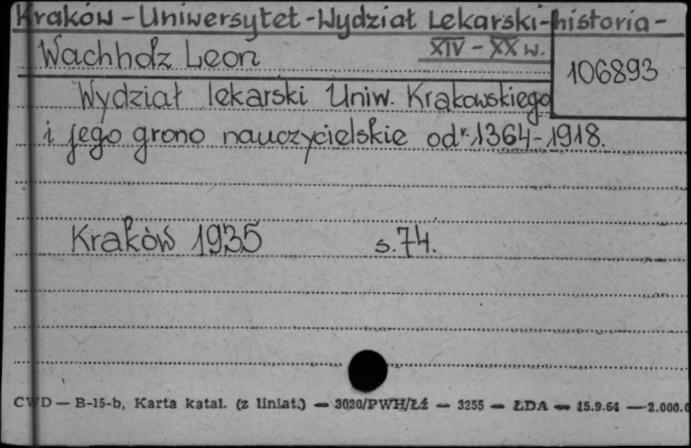 Kraków - Uniwersytet - Wydział Lekarski - historia -
XIV - XX w.
Wachholz Leon
106893
Wydział lekarski Uniw. Krakowskiego
i jego grono nauczycielskie od r. 1364-1918.
Kraków 1935 s. 74.
CWD — B-15-b, Karta katal. (z liniat.) — 3020/PWH/Łź — 3255 — ŁDA — 15.9.64 — 2.000.0